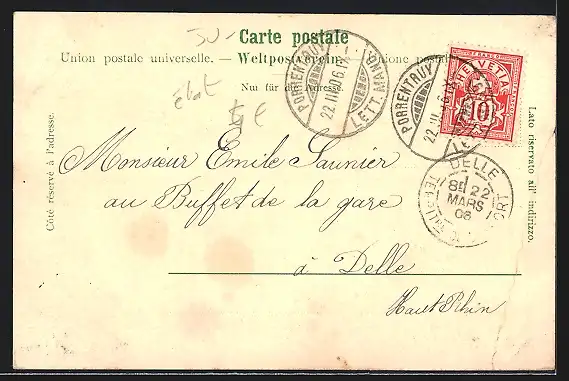 30.-
Carte postale
Union postale universelle. — Weltpostverein. — Unione postale
Nur für die Adresse.
état
PORRENTRUY
22.III.06.
LETT. MANG.
PORRENTRUY
22.III.06.
HELVETIA
FRANCO
10
DELLE
8E 22
MARS
06
Côté réservé à l'adresse.
Lato riservato all' indirizzo.
Monsieur Emile Saunier
au Buffet de la gare
à Delle
Haut Rhin